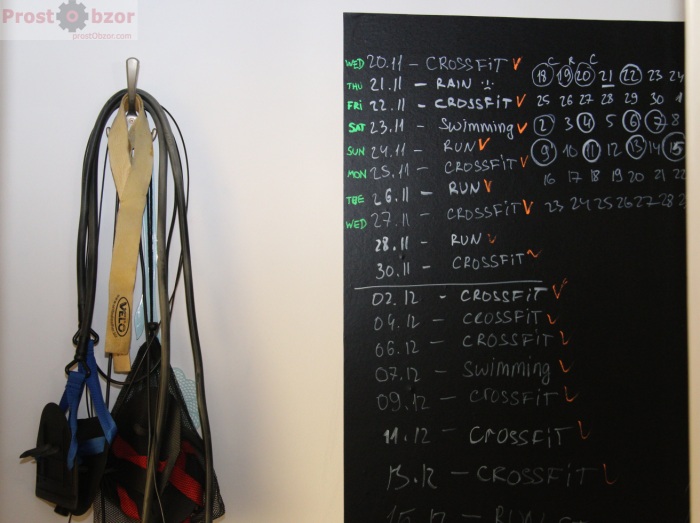 Prost Obzor
prostObzor.com
VELO
WED 20.11 - CROSSFIT ✓
THU 21.11 - RAIN :(
FRI 22.11 - CROSSFIT ✓
SAT 23.11 - Swimming ✓
SUN 24.11 - RUN ✓
MON 25.11 - CROSSFIT ✓
TUE 26.11 - RUN ✓
WED 27.11 - CROSSFIT ✓
28.11 - RUN ✓
30.11 - CROSSFIT ✓
02.12 - CROSSFIT ✓
04.12 - CROSSFIT ✓
06.12 - CROSSFIT ✓
07.12 - Swimming ✓
09.12 - CROSSFIT ✓
11.12 - CROSSFIT ✓
13.12 - CROSSFIT ✓
15.12 - RUN
C R C
18 19 20 21 22 23 24
25 26 27 28 29 30 1
2 3 4 5 6 7 8
9 10 11 12 13 14 15
16 17 18 19 20 21 22
23 24 25 26 27 28